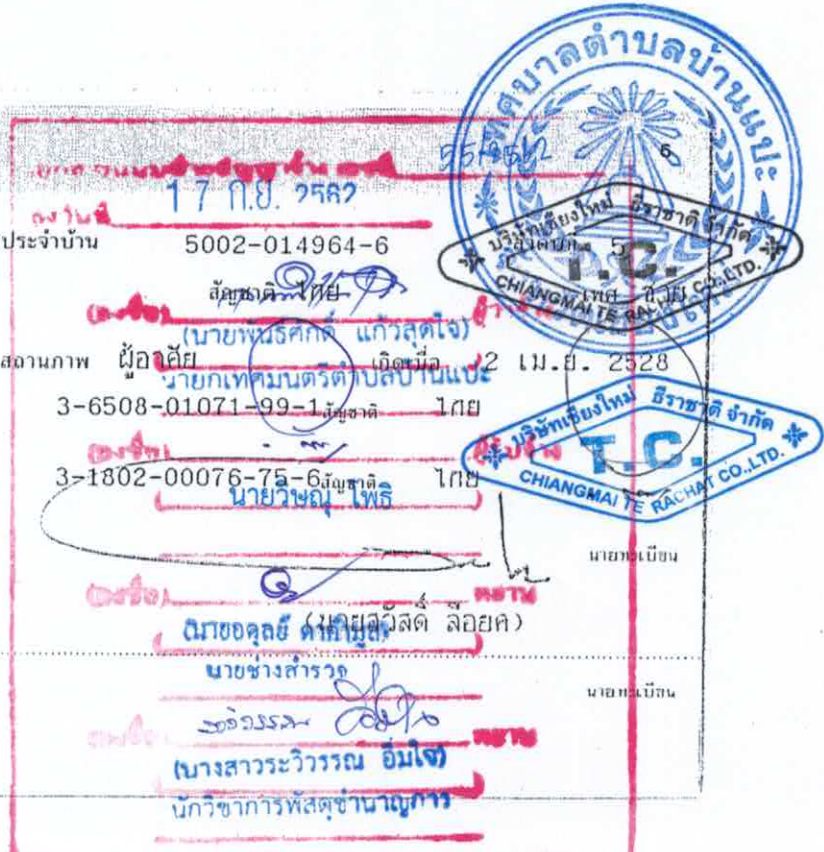 เทศบาลตำบลบ้านแปะ
6
17 ก.ย. 2562
ลงวันที่
ประจำบ้าน 5002-014964-6
ลำดับที่ 5
บริษัทเชียงใหม่ ธีราชาติ จำกัด
T.C.
CHIANGMAI TE RACHAT CO.,LTD.
สัญชาติ ไทย
เพศ
(ลงชื่อ)
(นายพันธ์ศักดิ์ แก้วสุดใจ)
สถานภาพ ผู้อาศัย เกิดเมื่อ 2 เม.ย. 2528
นายกเทศมนตรีตำบลบ้านแปะ
3-6508-01071-99-1 สัญชาติ ไทย
บริษัทเชียงใหม่ ธีราชาติ จำกัด
T.C.
CHIANGMAI TE RACHAT CO.,LTD.
(ลงชื่อ) ผู้รับจ้าง
3-1802-00076-75-6 สัญชาติ ไทย
นายวิษณุ โพธิ
นายทะเบียน
(ลงชื่อ) พยาน
นายช่างสำรวจ
นายทะเบียน
พยาน
(นางสาวระวิวรรณ อิ่มใจ)
นักวิชาการพัสดุชำนาญการ